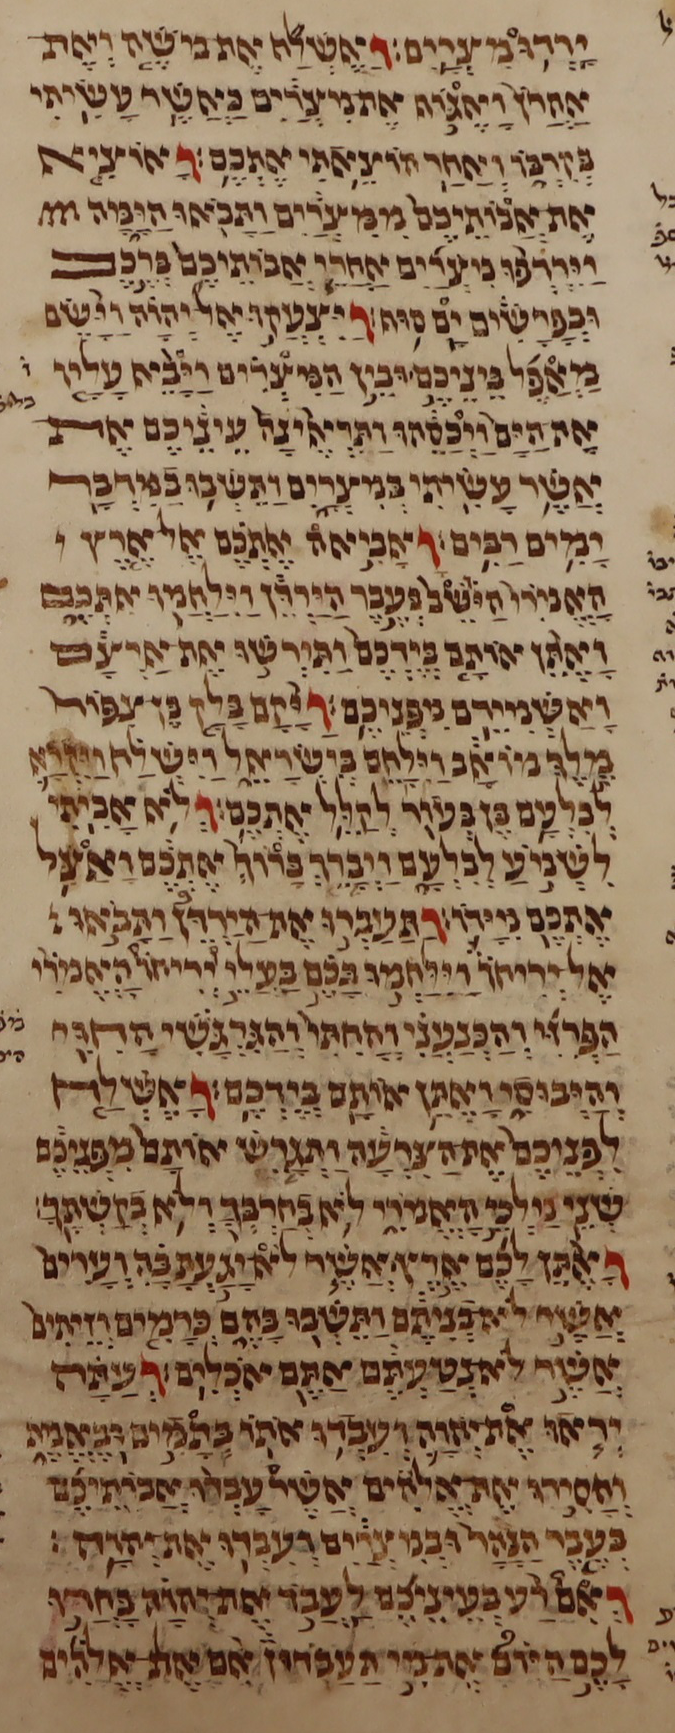 יָרְדוּ מִצְרָיִם׃ וָאֶשְׁלַח אֶת מֹשֶׁה וְאֶת
אַהֲרֹן וָאֶגֹּף אֶת מִצְרַיִם כַּאֲשֶׁר עָשִׂיתִי
בְּקִרְבּוֹ וְאַחַר הוֹצֵאתִי אֶתְכֶם׃ וָאוֹצִיא
אֶת אֲבוֹתֵיכֶם מִמִּצְרַיִם וַתָּבֹאוּ הַיָּמָּה
וַיִּרְדְּפוּ מִצְרַיִם אַחֲרֵי אֲבוֹתֵיכֶם בְּרֶכֶב
וּבְפָרָשִׁים יַם סוּף׃ וַיִּצְעֲקוּ אֶל יְהוָה וַיָּשֶׂם
מַאֲפֵל בֵּינֵיכֶם וּבֵין הַמִּצְרִים וַיָּבֵא עָלָיו
אֶת הַיָּם וַיְכַסֵּהוּ וַתִּרְאֶינָה עֵינֵיכֶם אֵת
אֲשֶׁר עָשִׂיתִי בְּמִצְרָיִם וַתֵּשְׁבוּ בַמִּדְבָּר
יָמִים רַבִּים׃ וָאָבִיאָה אֶתְכֶם אֶל אֶרֶץ
הָאֱמֹרִי הַיּוֹשֵׁב בְּעֵבֶר הַיַּרְדֵּן וַיִּלָּחֲמוּ אִתְּכֶם
וָאֶתֵּן אוֹתָם בְּיֶדְכֶם וַתִּירְשׁוּ אֶת אַרְצָם
וָאַשְׁמִידֵם מִפְּנֵיכֶם׃ וַיָּקָם בָּלָק בֶּן צִפּוֹר
מֶלֶךְ מוֹאָב וַיִּלָּחֶם בְּיִשְׂרָאֵל וַיִּשְׁלַח וַיִּקְרָא
לְבִלְעָם בֶּן בְּעוֹר לְקַלֵּל אֶתְכֶם׃ וְלֹא אָבִיתִי
לִשְׁמֹעַ לְבִלְעָם וַיְבָרֶךְ בָּרוֹךְ אֶתְכֶם וָאַצִּל
אֶתְכֶם מִיָּדוֹ׃ וַתַּעַבְרוּ אֶת הַיַּרְדֵּן וַתָּבֹאוּ
אֶל יְרִיחוֹ וַיִּלָּחֲמוּ בָכֶם בַּעֲלֵי יְרִיחוֹ הָאֱמֹרִי
הַפְּרִזִּי וְהַכְּנַעֲנִי וְהַחִתִּי וְהַגִּרְגָּשִׁי הַחִוִּי
וְהַיְבוּסִי וָאֶתֵּן אוֹתָם בְּיֶדְכֶם׃ וָאֶשְׁלַח
לִפְנֵיכֶם אֶת הַצִּרְעָה וַתְּגָרֶשׁ אוֹתָם מִפְּנֵיכֶם
שְׁנֵי מַלְכֵי הָאֱמֹרִי לֹא בְחַרְבְּךָ וְלֹא בְקַשְׁתֶּךָ׃
וָאֶתֵּן לָכֶם אֶרֶץ אֲשֶׁר לֹא יָגַעְתָּ בָּהּ וְעָרִים
אֲשֶׁר לֹא בְנִיתֶם וַתֵּשְׁבוּ בָּהֶם כְּרָמִים וְזֵיתִים
אֲשֶׁר לֹא נְטַעְתֶּם אַתֶּם אֹכְלִים׃ וְעַתָּה
יְראוּ אֶת יְהוָה וְעִבְדוּ אֹתוֹ בְּתָמִים וּבֶאֱמֶת
וְהָסִירוּ אֶת אֱלֹהִים אֲשֶׁר עָבְדוּ אֲבוֹתֵיכֶם
בְּעֵבֶר הַנָּהָר וּבְמִצְרַיִם וְעִבְדוּ אֶת יְהוָה׃
וְאִם רַע בְּעֵינֵיכֶם לַעֲבֹד אֶת יְהוָה בַּחֲרוּ
לָכֶם הַיּוֹם אֶת מִי תַעֲבֹדוּן אִם אֶת אֱלֹהִים